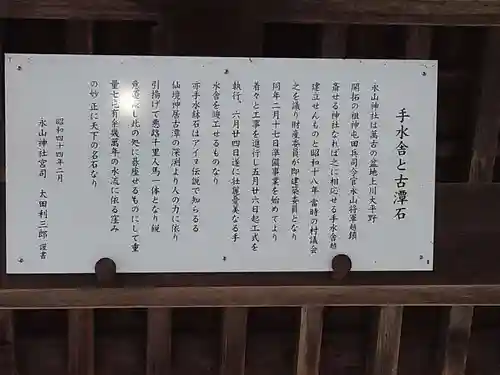 手水舎と古潭石
永山神社は萬古の盆地上川大平野
開拓の祖神屯田兵司令官永山将軍
斎せる神社なればこれに相応せる手水舎
建立せんものと昭和十八年 當時の村議会
之を議り財産委員が即建築委員となり
同年二月十七日準備事業を始めてより
着々と工事を進行し五月廿六日起工式を
執行、六月廿四日遂に壮麗豊美なる手
水舎を竣工せるものなり
亦手水鉢石はアイヌ伝説で知らるる
仙境神居古潭の深渕より人の力に依り
引揚げて悪路千里人馬一体となり
此の処に蟇座せる ものにして重
量七屯有余幾萬年の水流に依る窪み
の妙正に天下の名石なり
昭和四十四年二月
永山神社宮司 太田利三郎 謹書